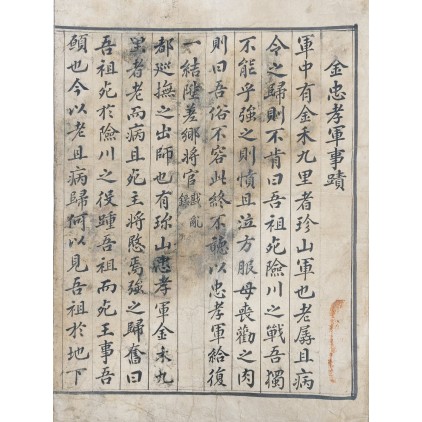 金忠孝軍事蹟
軍中有金禾九里者珍山軍也老孱且病
令之歸則不肯曰吾祖死險川之戰吾獨
不能乎強之則憤且泣方服母喪勸之肉
則曰吾俗不容此終不聽以忠孝軍給復
一結陞差鄉將官戡亂錄
都巡撫之出師也有珍山忠孝軍金禾九
里者老而病且死主將愍焉強之歸奮曰
吾祖死於險川之役踵吾祖而死王事吾
願也今以老且病歸何以見吾祖於地下